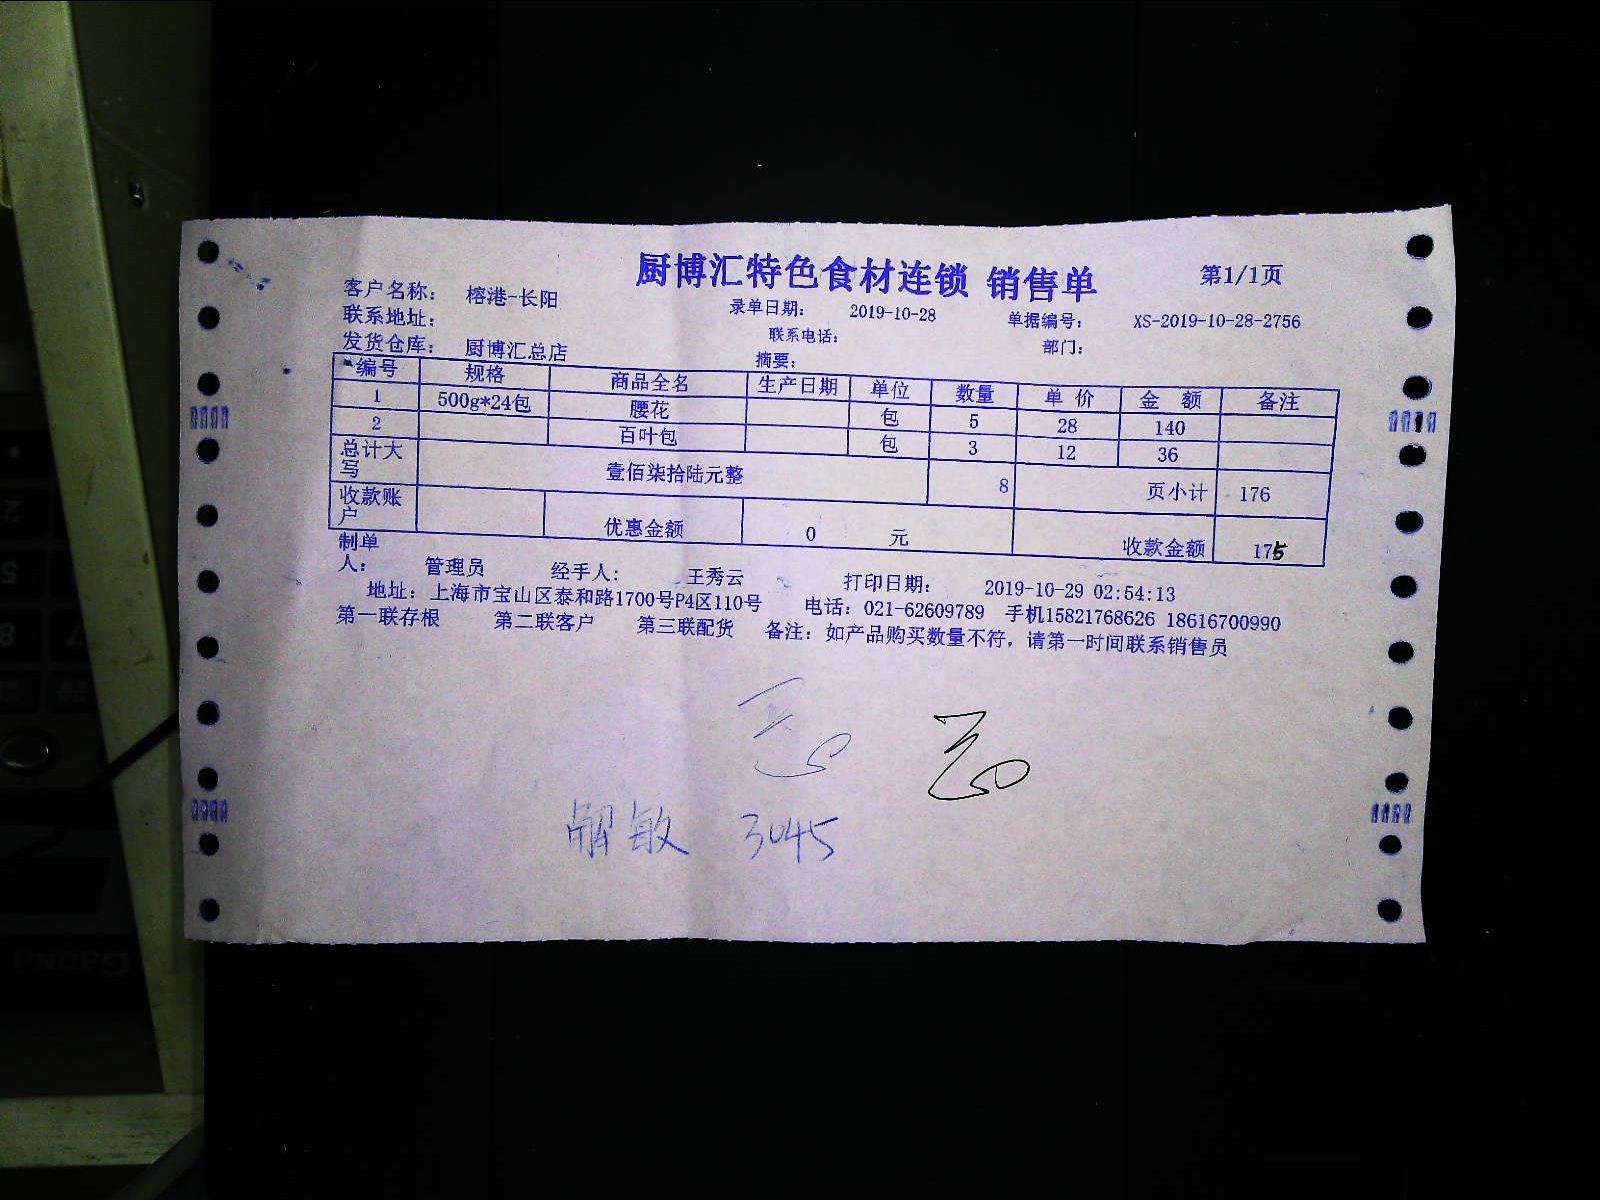 厨博汇特色食材连锁 销售单 第1/1页
客户名称: 榕港-长阳 录单日期: 2019-10-28 单据编号: XS-2019-10-28-2756
联系地址: 联系电话: 部门:
发货仓库: 厨博汇总店 摘要:
编号 规格 商品全名 生产日期 单位 数量 单价 金额 备注
1 500g*24包 腰花 包 5 28 140
2 百叶包 包 3 12 36
总计大写 壹佰柒拾陆元整 8 页小计 176
收款账户 优惠金额 0 元 收款金额 175
制单人: 管理员 经手人: 王秀云 打印日期: 2019-10-29 02:54:13
地址: 上海市宝山区泰和路1700号P4区110号 电话: 021-62609789 手机15821768626 18616700990
第一联存根 第二联客户 第三联配货 备注: 如产品购买数量不符, 请第一时间联系销售员
解敏 3045